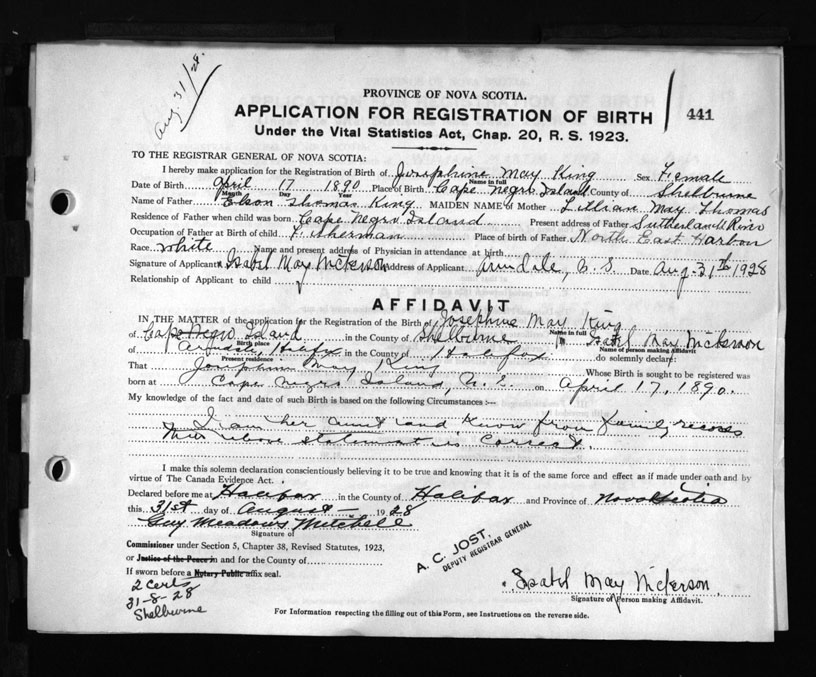 Aug. 31/28.
PROVINCE OF NOVA SCOTIA.
APPLICATION FOR REGISTRATION OF BIRTH
441
Under the Vital Statistics Act, Chap. 20, R. S. 1923.
TO THE REGISTRAR GENERAL OF NOVA SCOTIA:
I hereby make application for the Registration of Birth of Josephine May King Sex Female
Name in full
Date of Birth April 17 1890 Place of Birth Cape Negro Island County of Shelburne
Month Day Year
Name of Father Elson Thomas King MAIDEN NAME of Mother Lillian May Thomas
Residence of Father when child was born Cape Negro Island Present address of Father Sutherland River
Occupation of Father at Birth of child Fisherman Place of birth of Father North East Harbor
Race White Name and present address of Physician in attendance at birth
Signature of Applicant Isabel May Nickerson Address of Applicant Armdale, N.S. Date Aug. 31st 1928
Relationship of Applicant to child
AFFIDAVIT
IN THE MATTER of the application for the Registration of the Birth of Josephine May King
Name in full
of Cape Negro Island in the County of Shelburne I, Isabel May Nickerson
Birth place Name of person making Affidavit
of Armdale, Halifax in the County of Halifax do solemnly declare:
Present residence
That Josephine May King Whose Birth is sought to be registered was
born at Cape Negro Island, N.S. on April 17, 1890.
My knowledge of the fact and date of such Birth is based on the following Circumstances :—
I am her aunt and know from family records
that above statement is correct.
I make this solemn declaration conscientiously believing it to be true and knowing that it is of the same force and effect as if made under oath and by
virtue of The Canada Evidence Act.
Declared before me at Halifax in the County of Halifax and Province of Nova Scotia
this 31st day of August 1928
Guy Meadows Mitchell
Signature of
Commissioner under Section 5, Chapter 38, Revised Statutes, 1923,
or Justice of the Peace in and for the County of
If sworn before a Notary Public affix seal.
A. C. JOST.
DEPUTY REGISTRAR GENERAL
2 Certs
31-8-28
Shelburne
Isabel May Nickerson
Signature of Person making Affidavit.
For Information respecting the filling out of this Form, see Instructions on the reverse side.